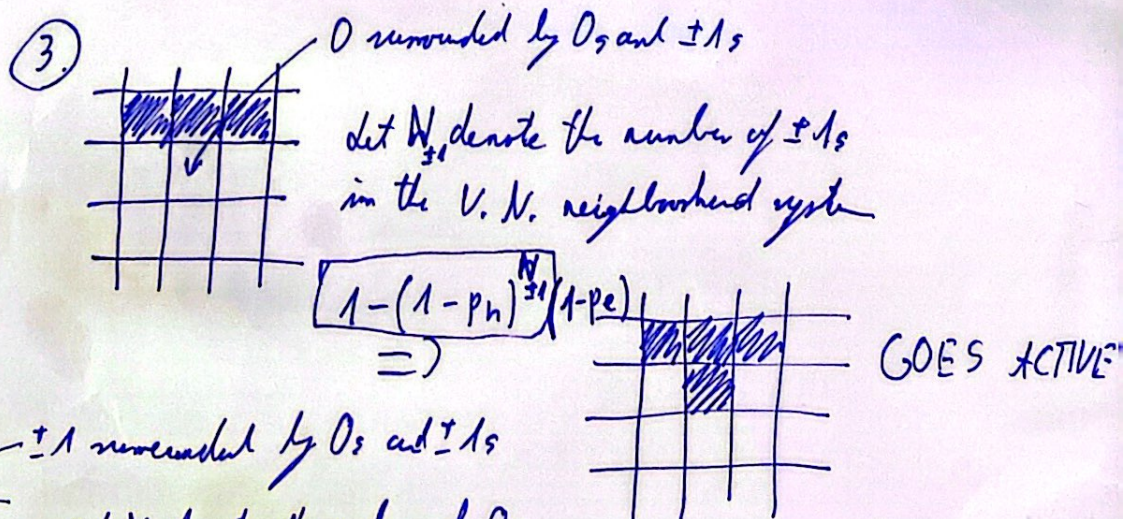 3.
0 surrounded by 0s and ±1s
Let N±1 denote the number of ±1s
in the V. N. neighbourhood system
1-(1-pn)^N±1 (1-pe)
=>
GOES ACTIVE"
±1 surrounded by 0s and ±1s